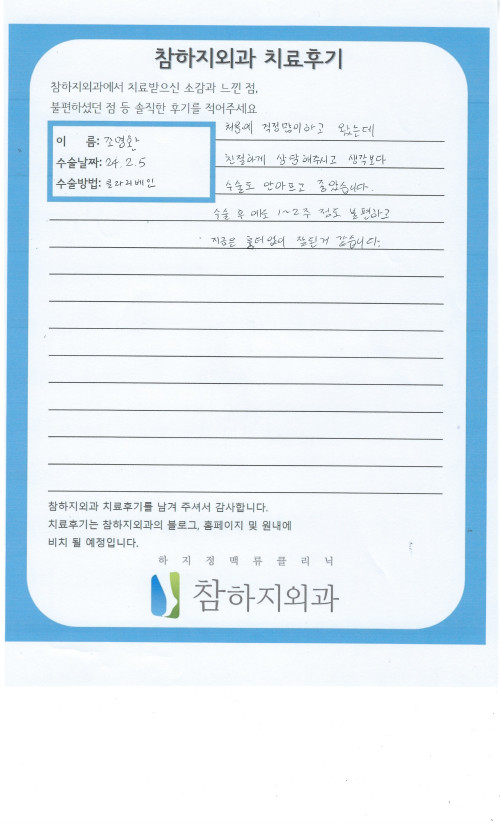 참하지외과 치료후기
참하지외과에서 치료받으신 소감과 느낀 점,
불편하셨던 점 등 솔직한 후기를 적어주세요
이 름: 조영환
수술날짜: 24. 2. 5
수술방법: 클라리베인
처음에 걱정많이하고 왔는데
친절하게 상담해주시고 생각보다
수술도 안아프고 좋았습니다.
수술 후 에도 1~2주 정도 불편하고
지금은 흉터없이 잘된거 같습니다.
참하지외과 치료후기를 남겨 주셔서 감사합니다.
치료후기는 참하지외과의 블로그, 홈페이지 및 원내에
비치 될 예정입니다.
하지정맥류클리닉
참하지외과